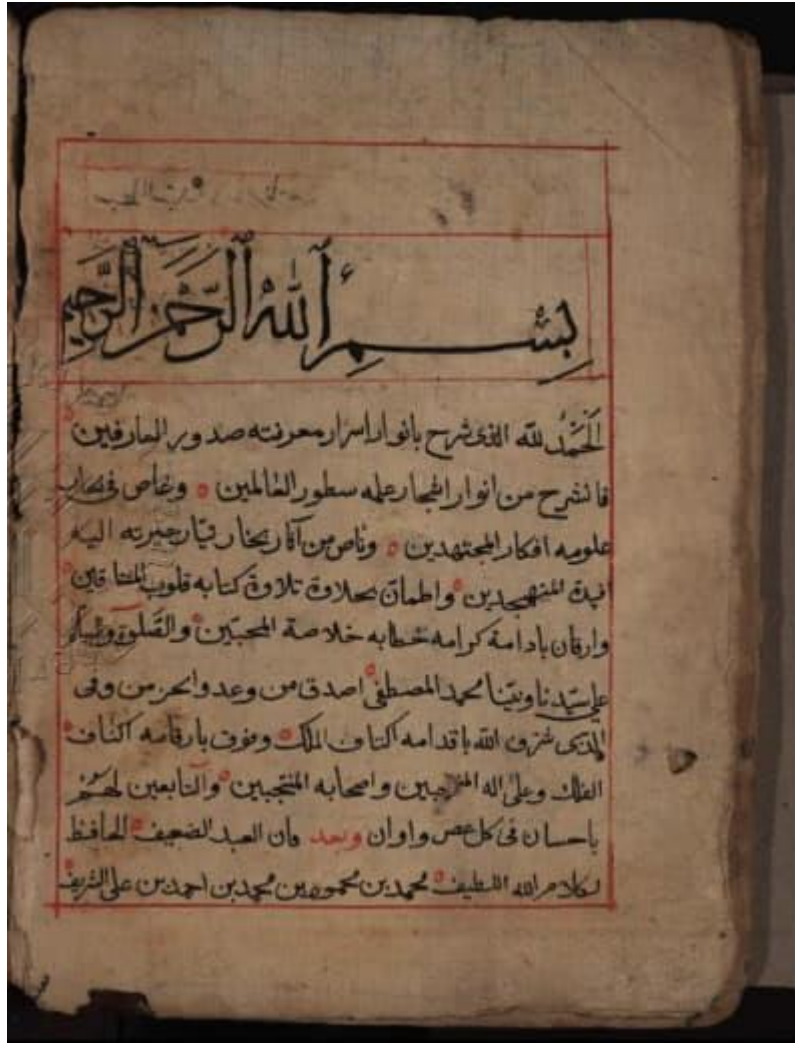 بسم الله الرحمن الرحيم
الحمد لله الذى شرح بانوار اسرار معرفته صدور العارفين
فانشرح من انوار انفجار علمه سطور العالمين وغاص فى بحار
علومه افكار المجتهدين وناص من آثار بحار تيار حيرته اليه
افيدة المتهجدين واطمان بحلاوة تلاوة كتابه قلوب المشتاقين
وارقان بادامة كرامه خطابه خلاصة المحبين والصلوة
على سيدنا ونبينا محمد المصطفى اصدق من وعد وانجز من وفى
الذى شرف الله باقدامه اكتاف الملك وفوق بارقامه اكناف
الفلك وعلى اله المنتجبين واصحابه المنتجبين والتابعين لهم
باحسان فى كل عصر واوان وبعد فان العبد الضعيف الحافظ
لكلام الله اللطيف محمد بن محمود بن محمد بن احمد بن على الشريف